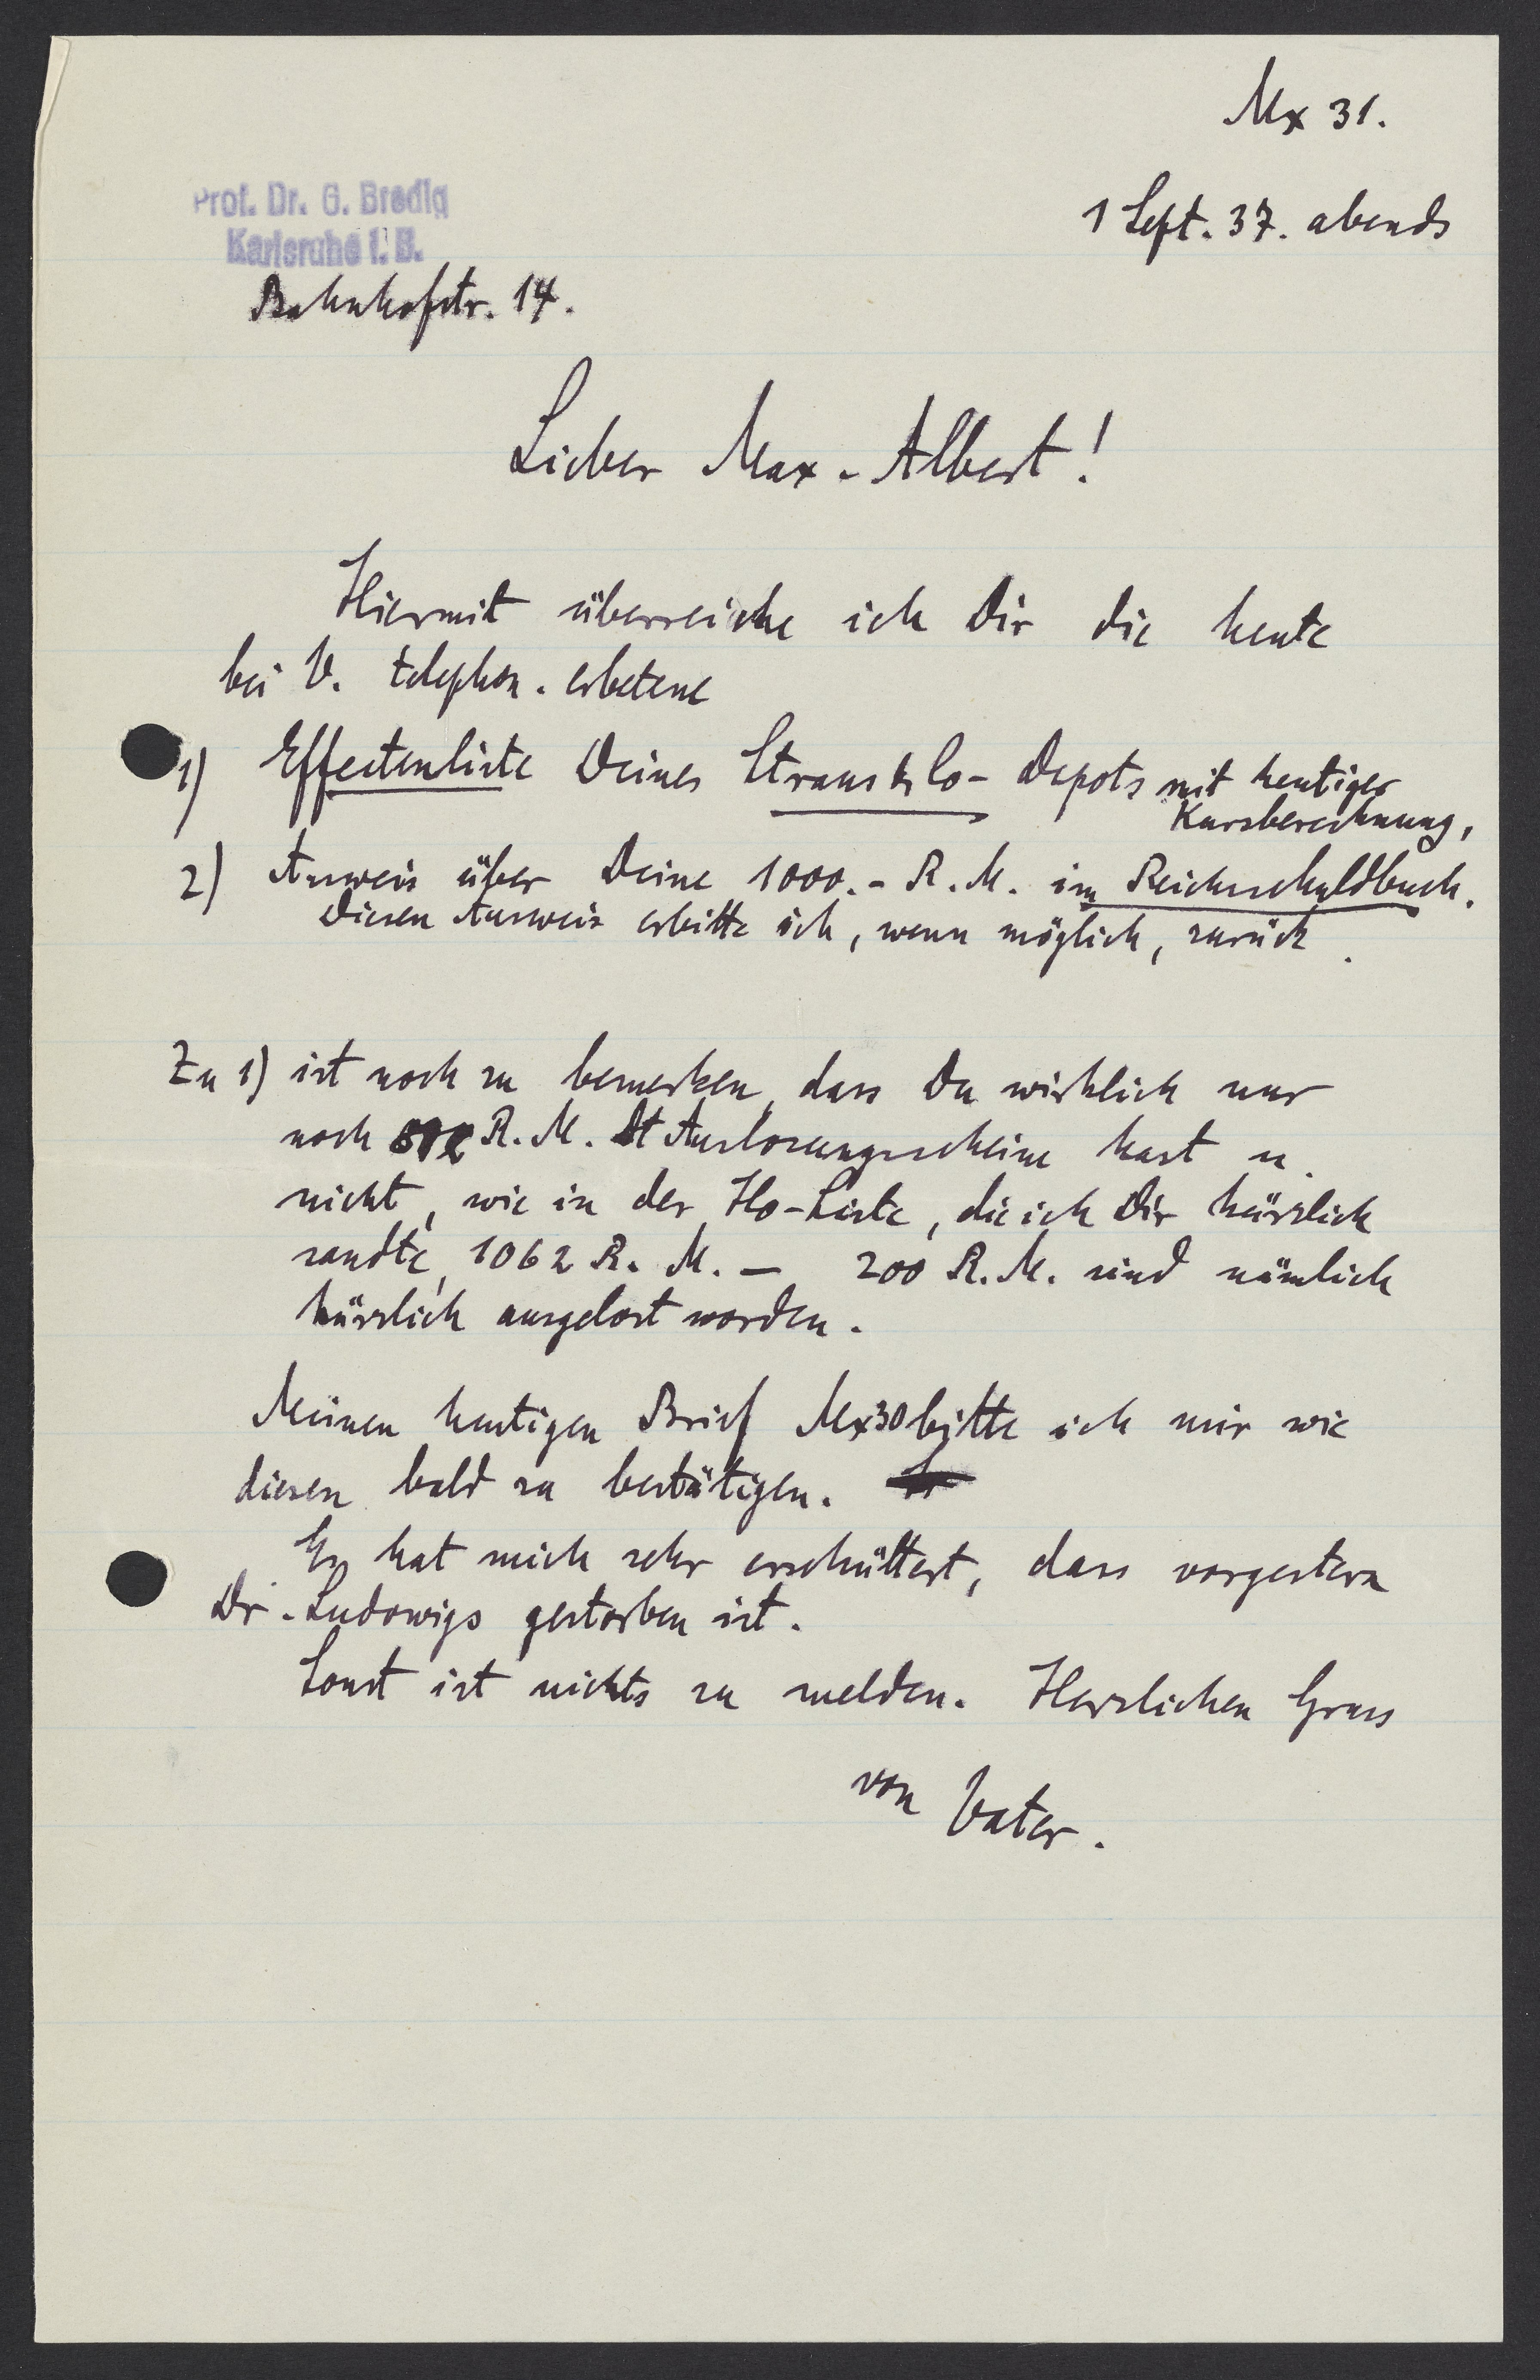 Mx 31.
1 Sept. 37. abends
Prof. Dr. G. Bredig
Karlsruhe i. B.
Bahnhofstr. 14.
Lieber Max-Albert!
Hiermit überreiche ich Dir die heute
bei V. telephon. erbetene
1) Effectenliste Deines Straus & Co- Depots mit heutiger
Kursberechnung,
2) Ausweis über Deine 1000.- R.M. im Reichsschuldbuch.
Diesen Ausweis erbitte ich, wenn möglich, zurück.
Zu 1) ist noch zu bemerken, dass Du wirklich nur
noch R.M. Auslosungsscheine hast u.
nicht, wie in der Ho-Liste, die ich Dir kürzlich
sandte, 1062 R. M. — 200 R.M. sind nämlich
kürzlich ausgelost worden.
Meinen heutigen Brief Mx30 bitte ich mir wie
diesen bald zu bestätigen.
Es hat mich sehr erschüttert, dass vorgestern
Dr. Ludowigs gestorben ist.
Sonst ist nichts zu melden. Herzlichen Gruss
von Vater.